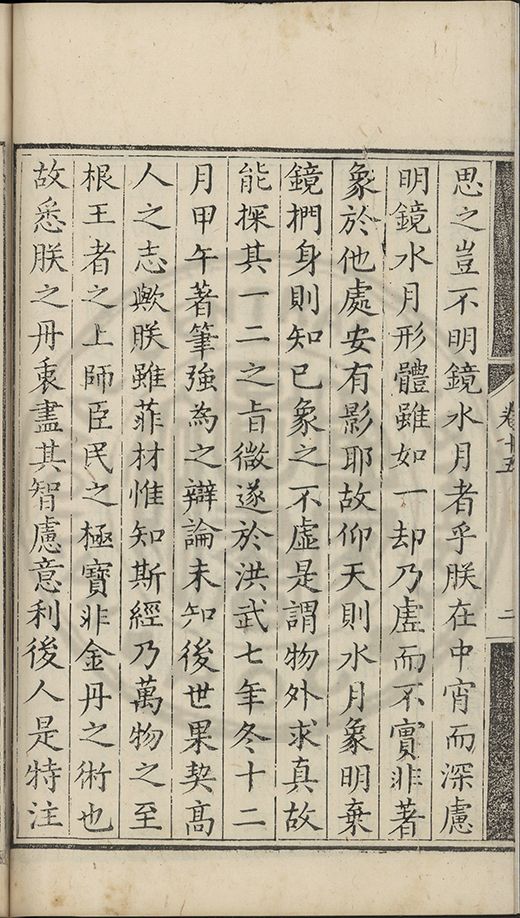 卷十五
二
思之豈不明鏡水月者乎朕在中宵而深慮
明鏡水月形體雖如一却乃虛而不實非著
象於他處安有影耶故仰天則水月象明棄
鏡捫身則知已象之不虛是謂物外求真故
能探其一二之旨微遂於洪武七年冬十二
月甲午著筆強為之辯論未知後世果契高
人之志歟朕雖菲材惟知斯經乃萬物之至
根王者之上師臣民之極寶非金丹之術也
故悉朕之丹衷盡其智慮意利後人是特注